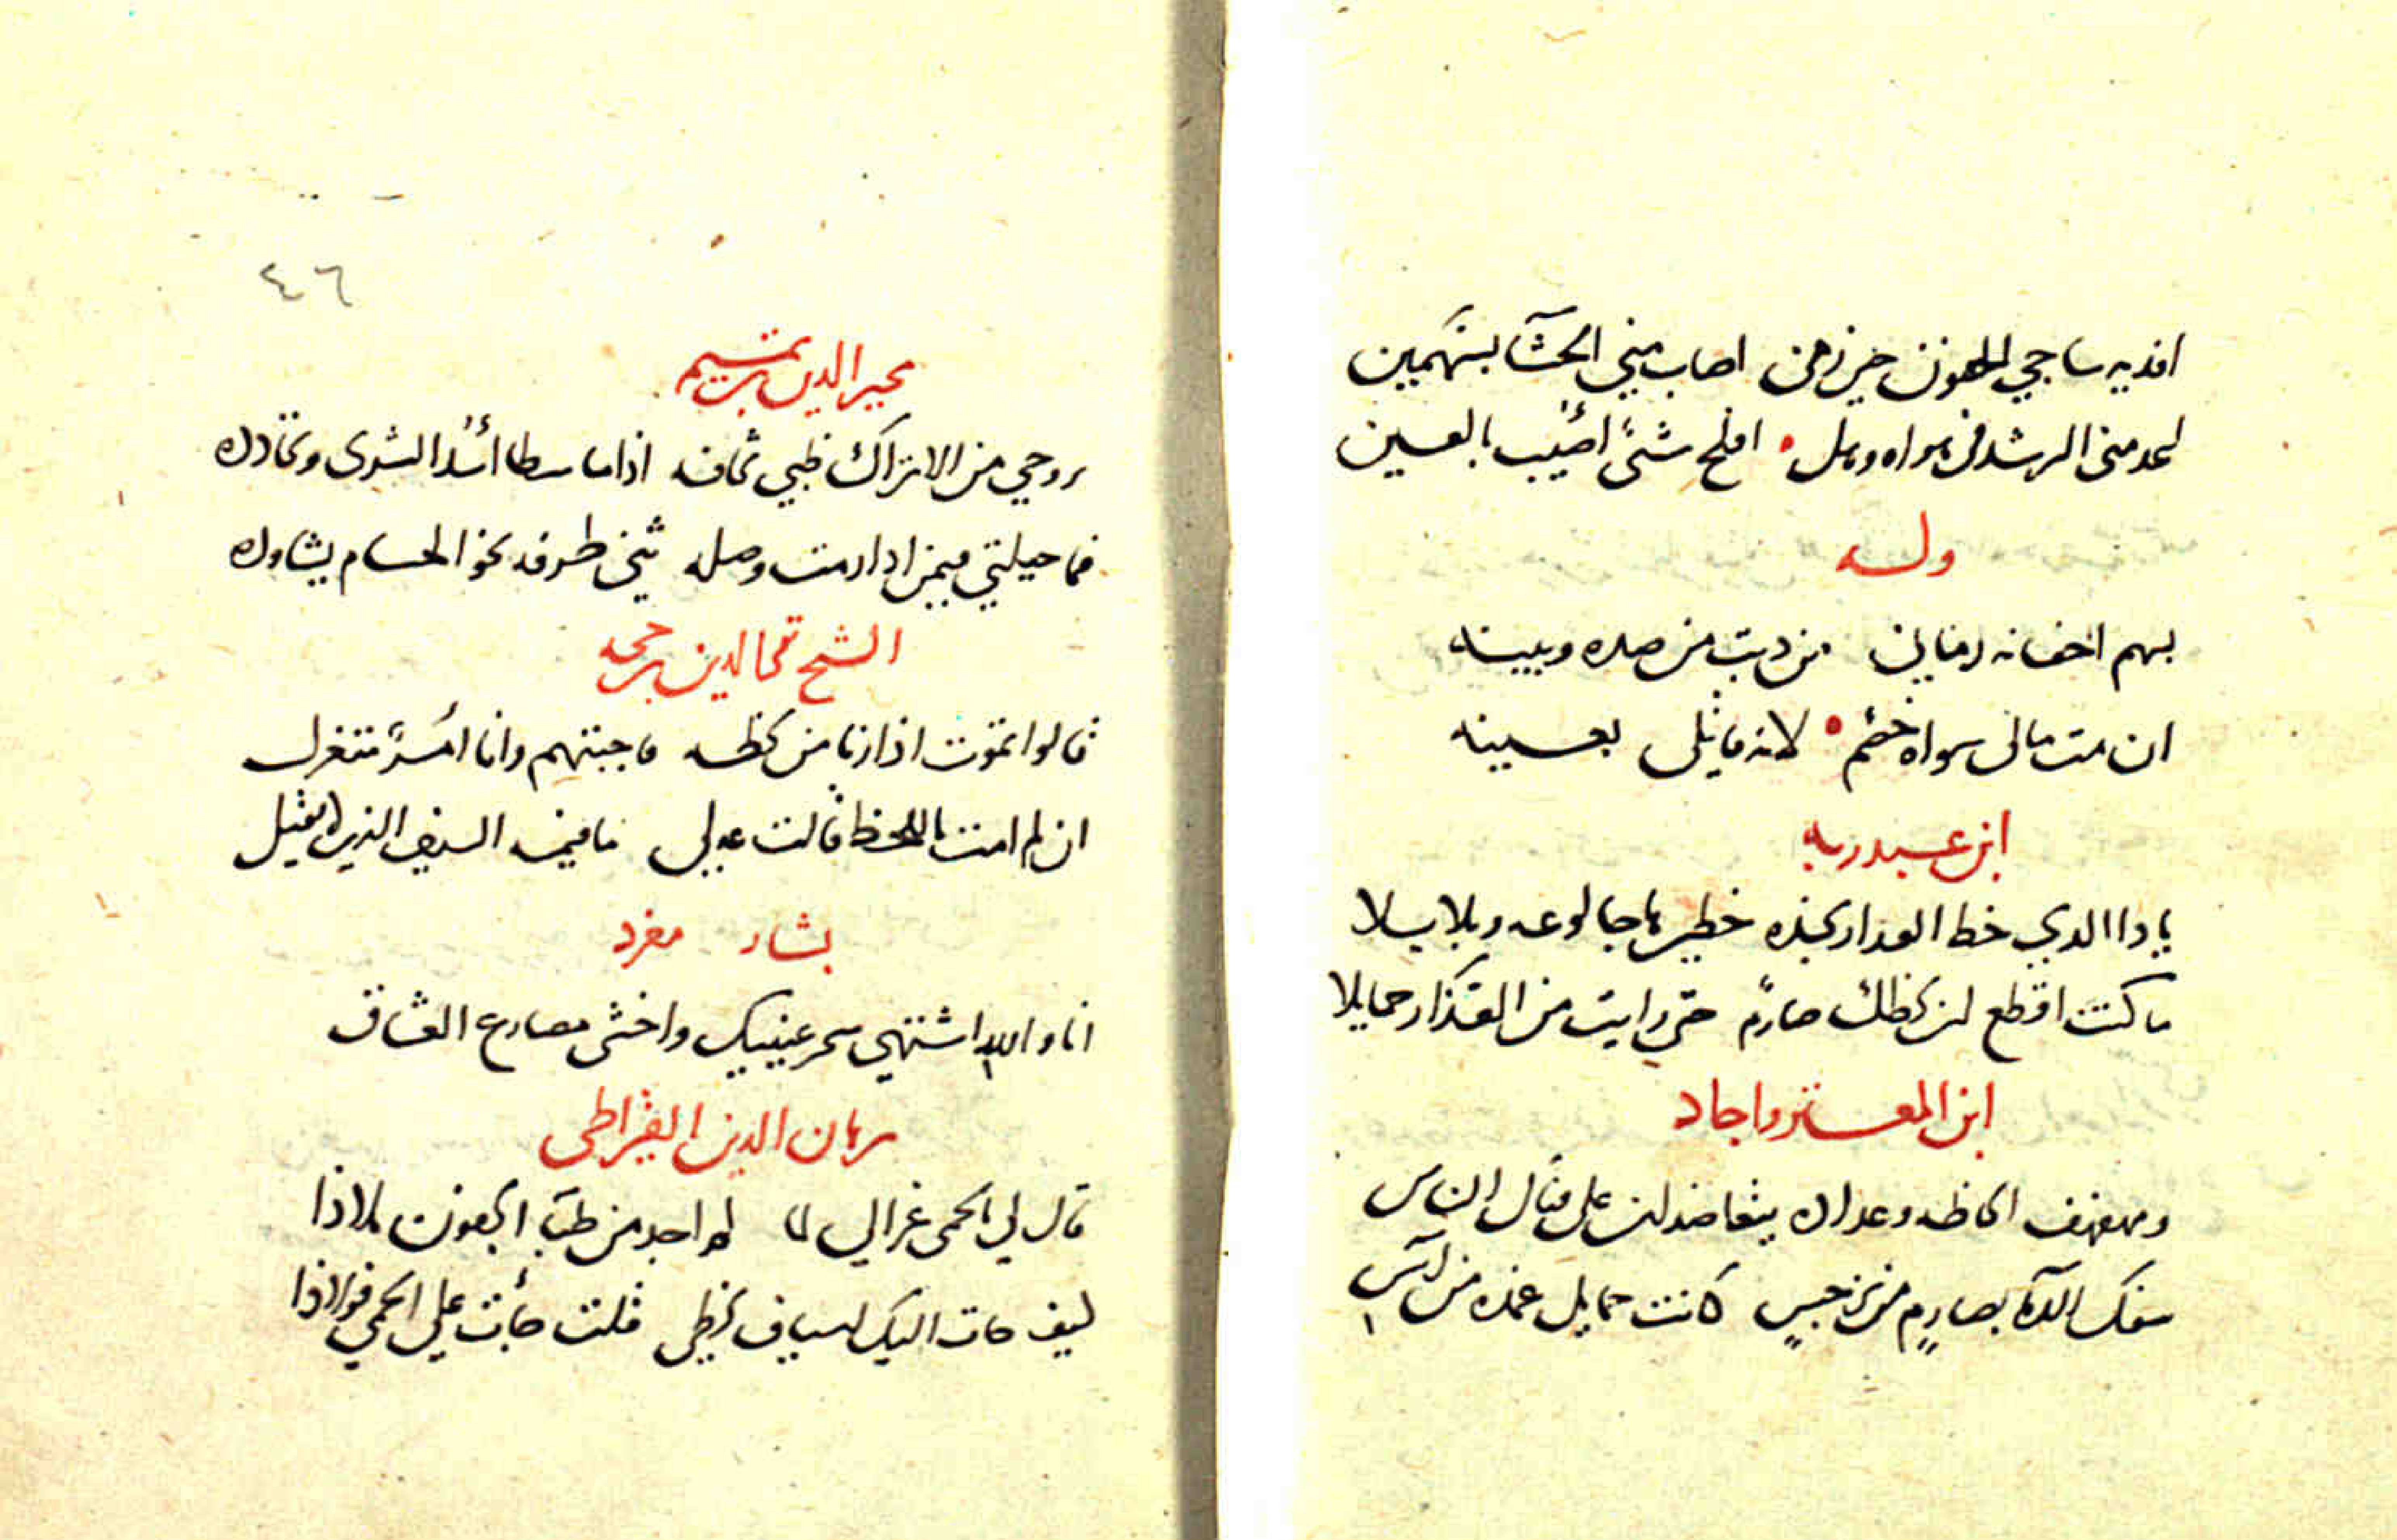 افديه ساجي الجفون حين رنى اصاب مني الحشآ بسهمين
اعدمني الرشد في هواه ولا افلح شئ اصيب بالعين
وله
بسهم اجفانه رماني من دبت من صده وبينه
ان مت مالي سواه خصم لانه قاتلي بعينه
ابن عبد ربه
يا ذا الذي خط العذار بخده خطين هاجا لوعه وبلابلا
ما كنت اقطع ان لحظك صارم حتى رايت من العذار حمايلا
ابن المعتز واجاد
ومهفهف الحاظه وعذاره يتعاضدان على قتال الناس
سفك الدمآ بصارم من نرجس كانت حمايل غمده من آس
٤٦
مجير الدين بن تميم
بروحي من الاتراك ظبي تخافه اذا ما سطا اسد الشرى وتحاذره
فما حيلتي فيمن اذا رمت وصله ثنى طرفه نحو الحسام يشاوره
الشيخ تقي الدين بن حجه
قالوا تموت اذا رنا من لحظه فاجبتهم وانا امرؤ متغزل
ان لم امت باللحظ قالت عذلي ما فيه السيف الذي لا يقتل
بشار مفرد
انا والله اشتهي سحر عينيك واخشى مصارع العشاق
برهان الدين القيراطي
قال لي الحمى غزالي لما لم اجد من ظبا الجفون ملاذا
كيف حات اليك اسياف لحظي قلت جأت على الحمي فولاذا